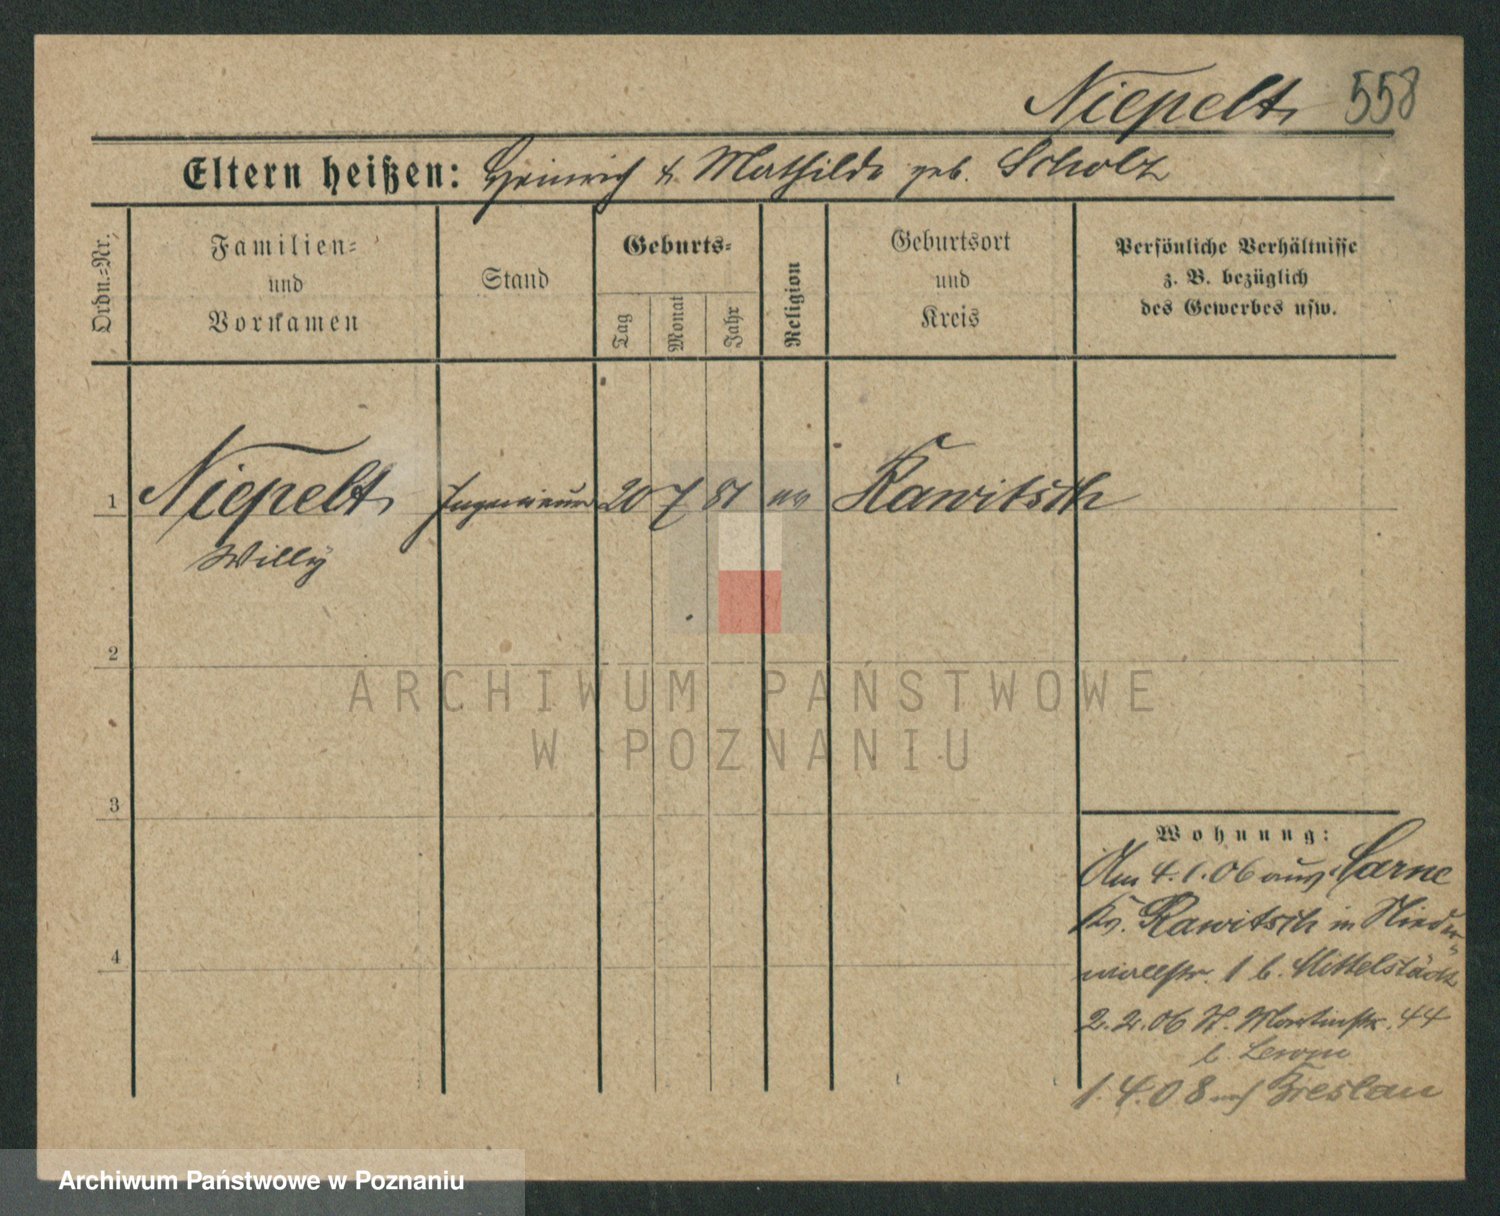 Niepelt 558
Eltern heißen: Heinrich & Mathilde geb. Scholz
Ordn.=Nr.
Familien=
und
Vornamen
Stand
Geburts=
Tag
Monat
Jahr
Religion
Geburtsort
und
Kreis
Persönliche Verhältnisse
z. B. bezüglich
des Gewerbes usw.
1 Niepelt Ingenieur 20 7 81 ev Rawitsch
Willy
2
3
4
Wohnung:
Am 4.1.06 aus Sarne
Kr. Rawitsch in Nieder=
wallstr. 1 b. Mittelstädt
2.2.06 St. Martinstr. 44
b. Lewin
1.4.08 nach Breslau
ARCHIWUM PAŃSTWOWE
W POZNANIU
Archiwum Państwowe w Poznaniu